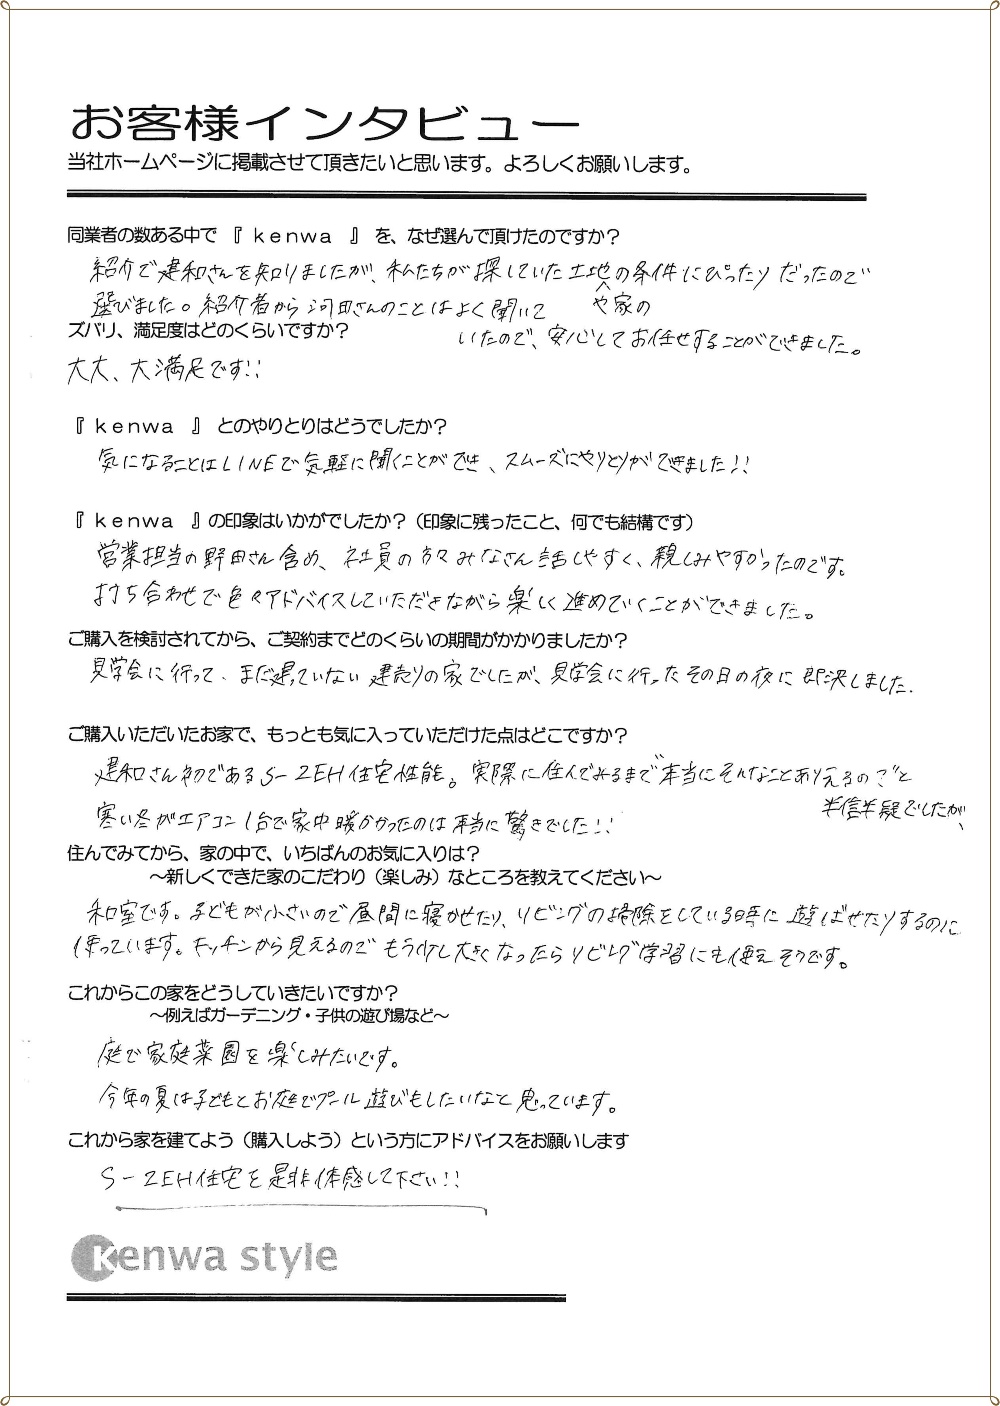 お客様インタビュー
当社ホームページに掲載させて頂きたいと思います。よろしくお願いします。
同業者の数ある中で 『 kenwa 』 を、なぜ選んで頂けたのですか？
紹介で建和さんを知りましたが、私たちが探していた土地や家の条件にぴったりだったので
選びました。紹介者から河田さんのことはよく聞いて
いたので、安心してお任せすることができました。
ズバリ、満足度はどのくらいですか？
大大、大満足です!!
『 kenwa 』 とのやりとりはどうでしたか？
気になることはLINEで気軽に聞くことができ、スムーズにやりとりができました!!
『 kenwa 』の印象はいかがでしたか？（印象に残ったこと、何でも結構です）
営業担当の野田さん含め、社員の方々みなさん話しやすく、親しみやすかったのです。
打ち合わせで色々アドバイスしていただきながら楽しく進めていくことができました。
ご購入を検討されてから、ご契約までどのくらいの期間がかかりましたか？
見学会に行って、まだ建っていない建売りの家でしたが、見学会に行ったその日の夜に即決しました.
ご購入いただいたお家で、もっとも気に入っていただけた点はどこですか？
建和さん初であるS-ZEH住宅性能。実際に住んでみるまで本当にそんなことありえるの？と
半信半疑でしたが、
寒い冬がエアコン1台で家中暖かかったのは本当に驚きでした!!
住んでみてから、家の中で、いちばんのお気に入りは？
～新しくできた家のこだわり（楽しみ）なところを教えてください～
和室です。子どもが小さいので昼間に寝かせたり、リビングの掃除をしている時に遊ばせたりするのに
使っています。キッチンから見えるのでもう少し大きくなったらリビング学習にも使えそうです。
これからこの家をどうしていきたいですか？
～例えばガーデニング・子供の遊び場など～
庭で家庭菜園を楽しみたいです。
今年の夏は子どもとお庭でプール遊びもしたいなと思っています。
これから家を建てよう（購入しよう）という方にアドバイスをお願いします
S-ZEH住宅を是非体感して下さい!!
kenwa style